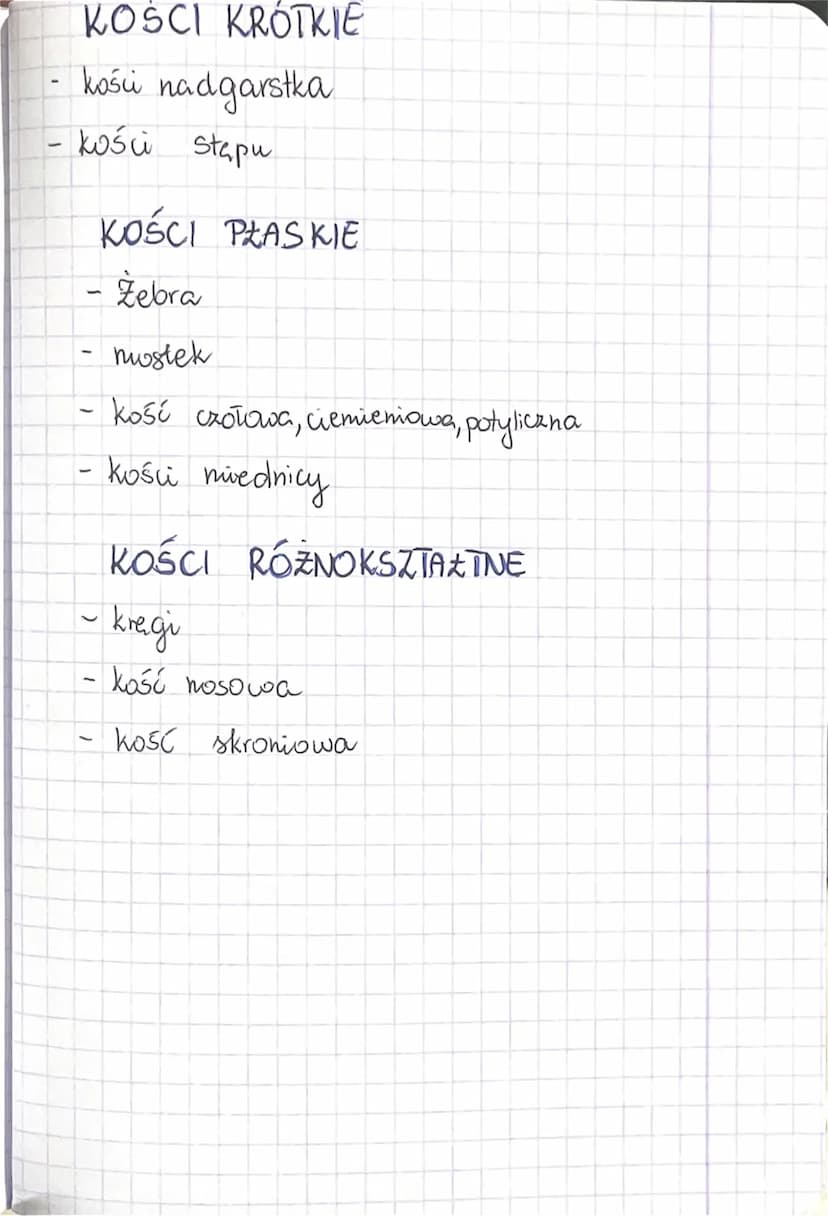 KOŚCI KRÓTKIE
- kości nadgarstka
- kości stępu
KOŚCI PŁASKIE
- Żebra
- mostek
- kość czołowa, ciemieniowa, potyliczna
- kości miednicy
KOŚCI RÓŻNOKSZTAŁTNE
- kręgi
- kość nosowa
- kość skroniowa